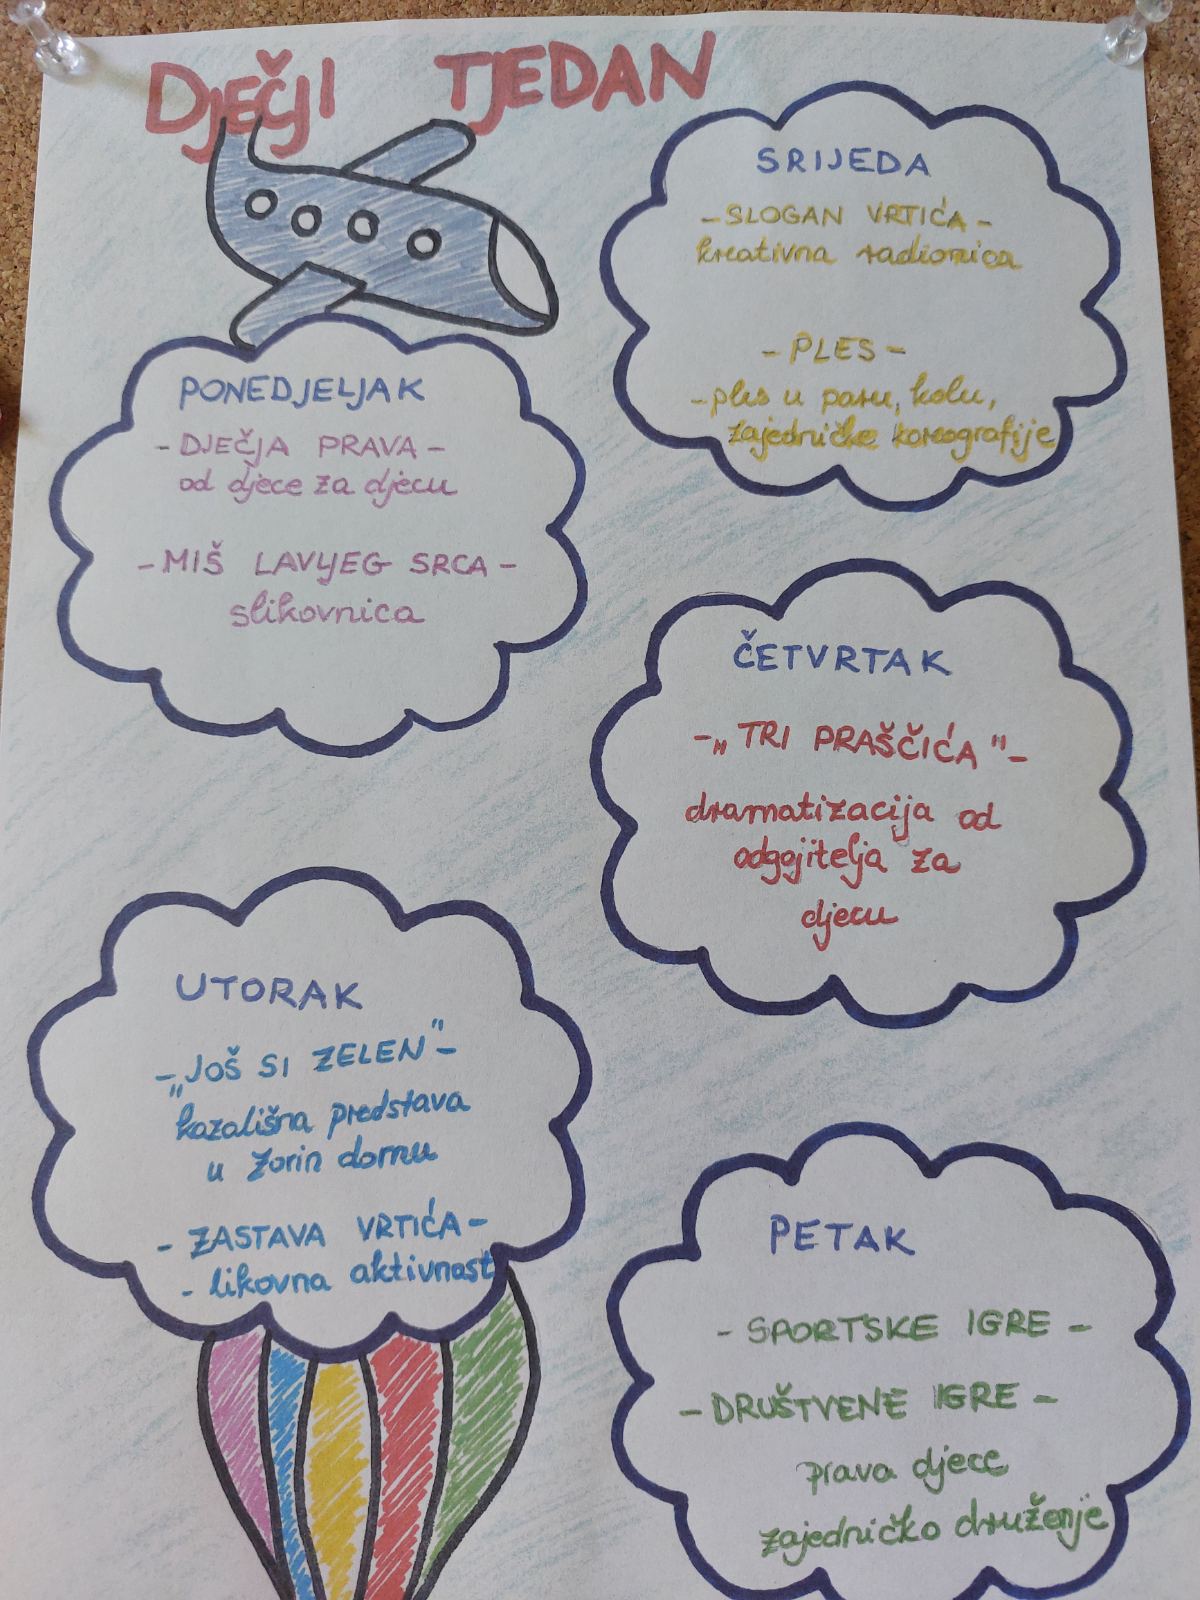 DJEČJI TJEDAN
PONEDJELJAK
- DJEČJA PRAVA -
od djece za djecu
- MIŠ LAVLJEG SRCA -
slikovnica
UTORAK
- "JOŠ SI ZELEN" -
kazališna predstava
u Zorin domu
- ZASTAVA VRTIĆA -
- likovna aktivnost
SRIJEDA
- SLOGAN VRTIĆA -
kreativna radionica
- PLES -
- ples u paru, kolu,
zajedničke koreografije
ČETVRTAK
- „TRI PRAŠČIĆA" -
dramatizacija od
odgojitelja za
djecu
PETAK
- SPORTSKE IGRE -
- DRUŠTVENE IGRE -
prava djece
zajedničko druženje